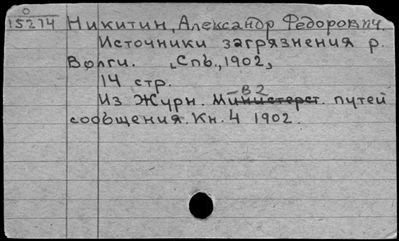 0
15274 Никитин, Александр Федорович.
Источники загрязнения р.
Волги. [Спb., 1902,]
14 стр.
-В2
Из Журн. Министерст. путей
сообщения. Кн. 4 1902.